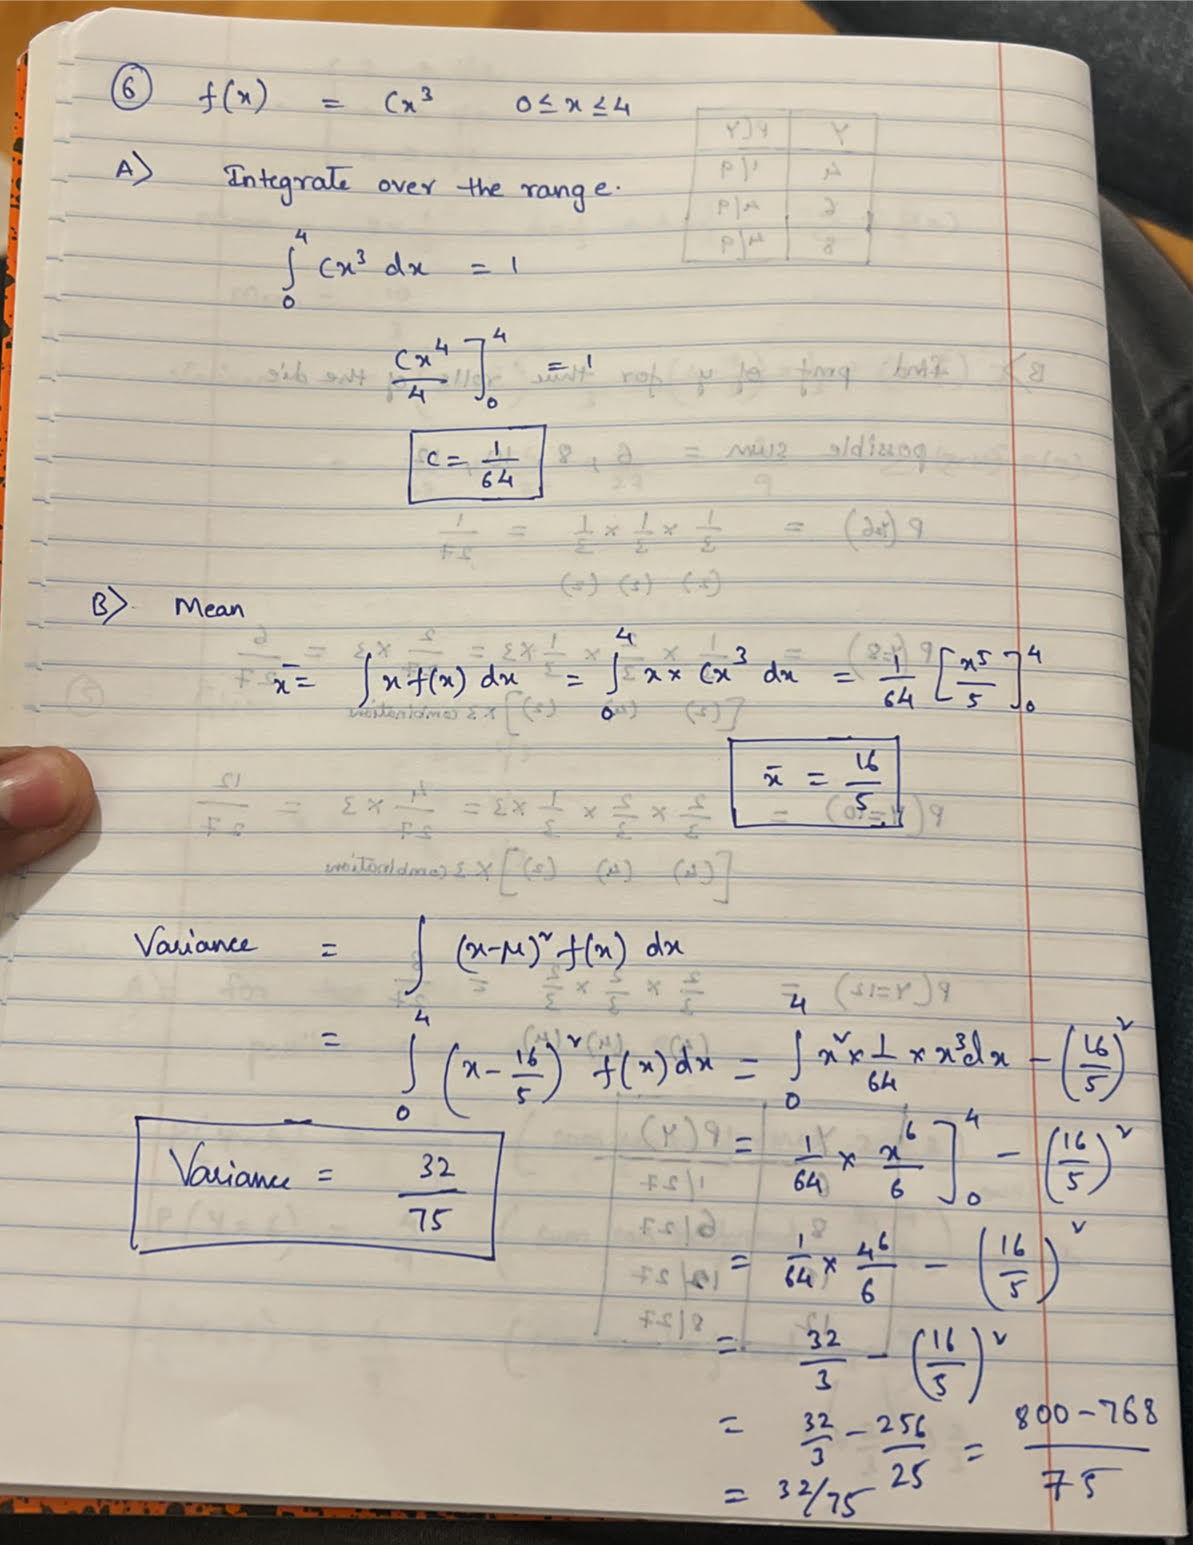 ⑥ f(x) = Cx³ 0 ≤ x ≤ 4
A> Integrate over the range.
∫₀⁴ Cx³ dx = 1
Cx⁴/4 ]₀⁴ = 1
C = 1/64
B> Mean
x̄ = ∫ x f(x) dx = ∫₀⁴ x × Cx³ dx = 1/64 [x⁵/5]₀⁴
x̄ = 16/5
Variance = ∫ (x-μ)² f(x) dx
= ∫₀⁴ (x - 16/5)² f(x) dx = ∫₀⁴ x² × 1/64 × x³ dx - (16/5)²
= 1/64 × x⁶/6 ]₀⁴ - (16/5)²
Variance = 32/75
= 1/64 × 4⁶/6 - (16/5)²
= 32/3 - (16/5)²
= 32/3 - 256/25 = 800-768/75
= 32/75